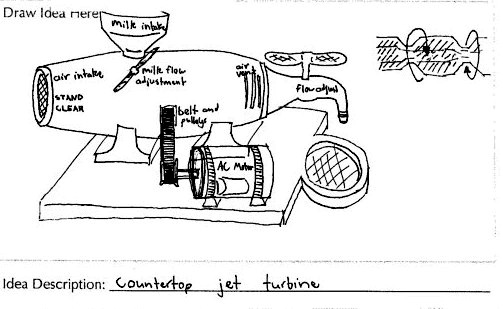 Draw Idea Here
milk intake
air intake
STAND
CLEAR
milk flow
adjustment
air
vent
flow adjust
belt and
pulleys
AC Motor
Idea Description: Countertop jet turbine